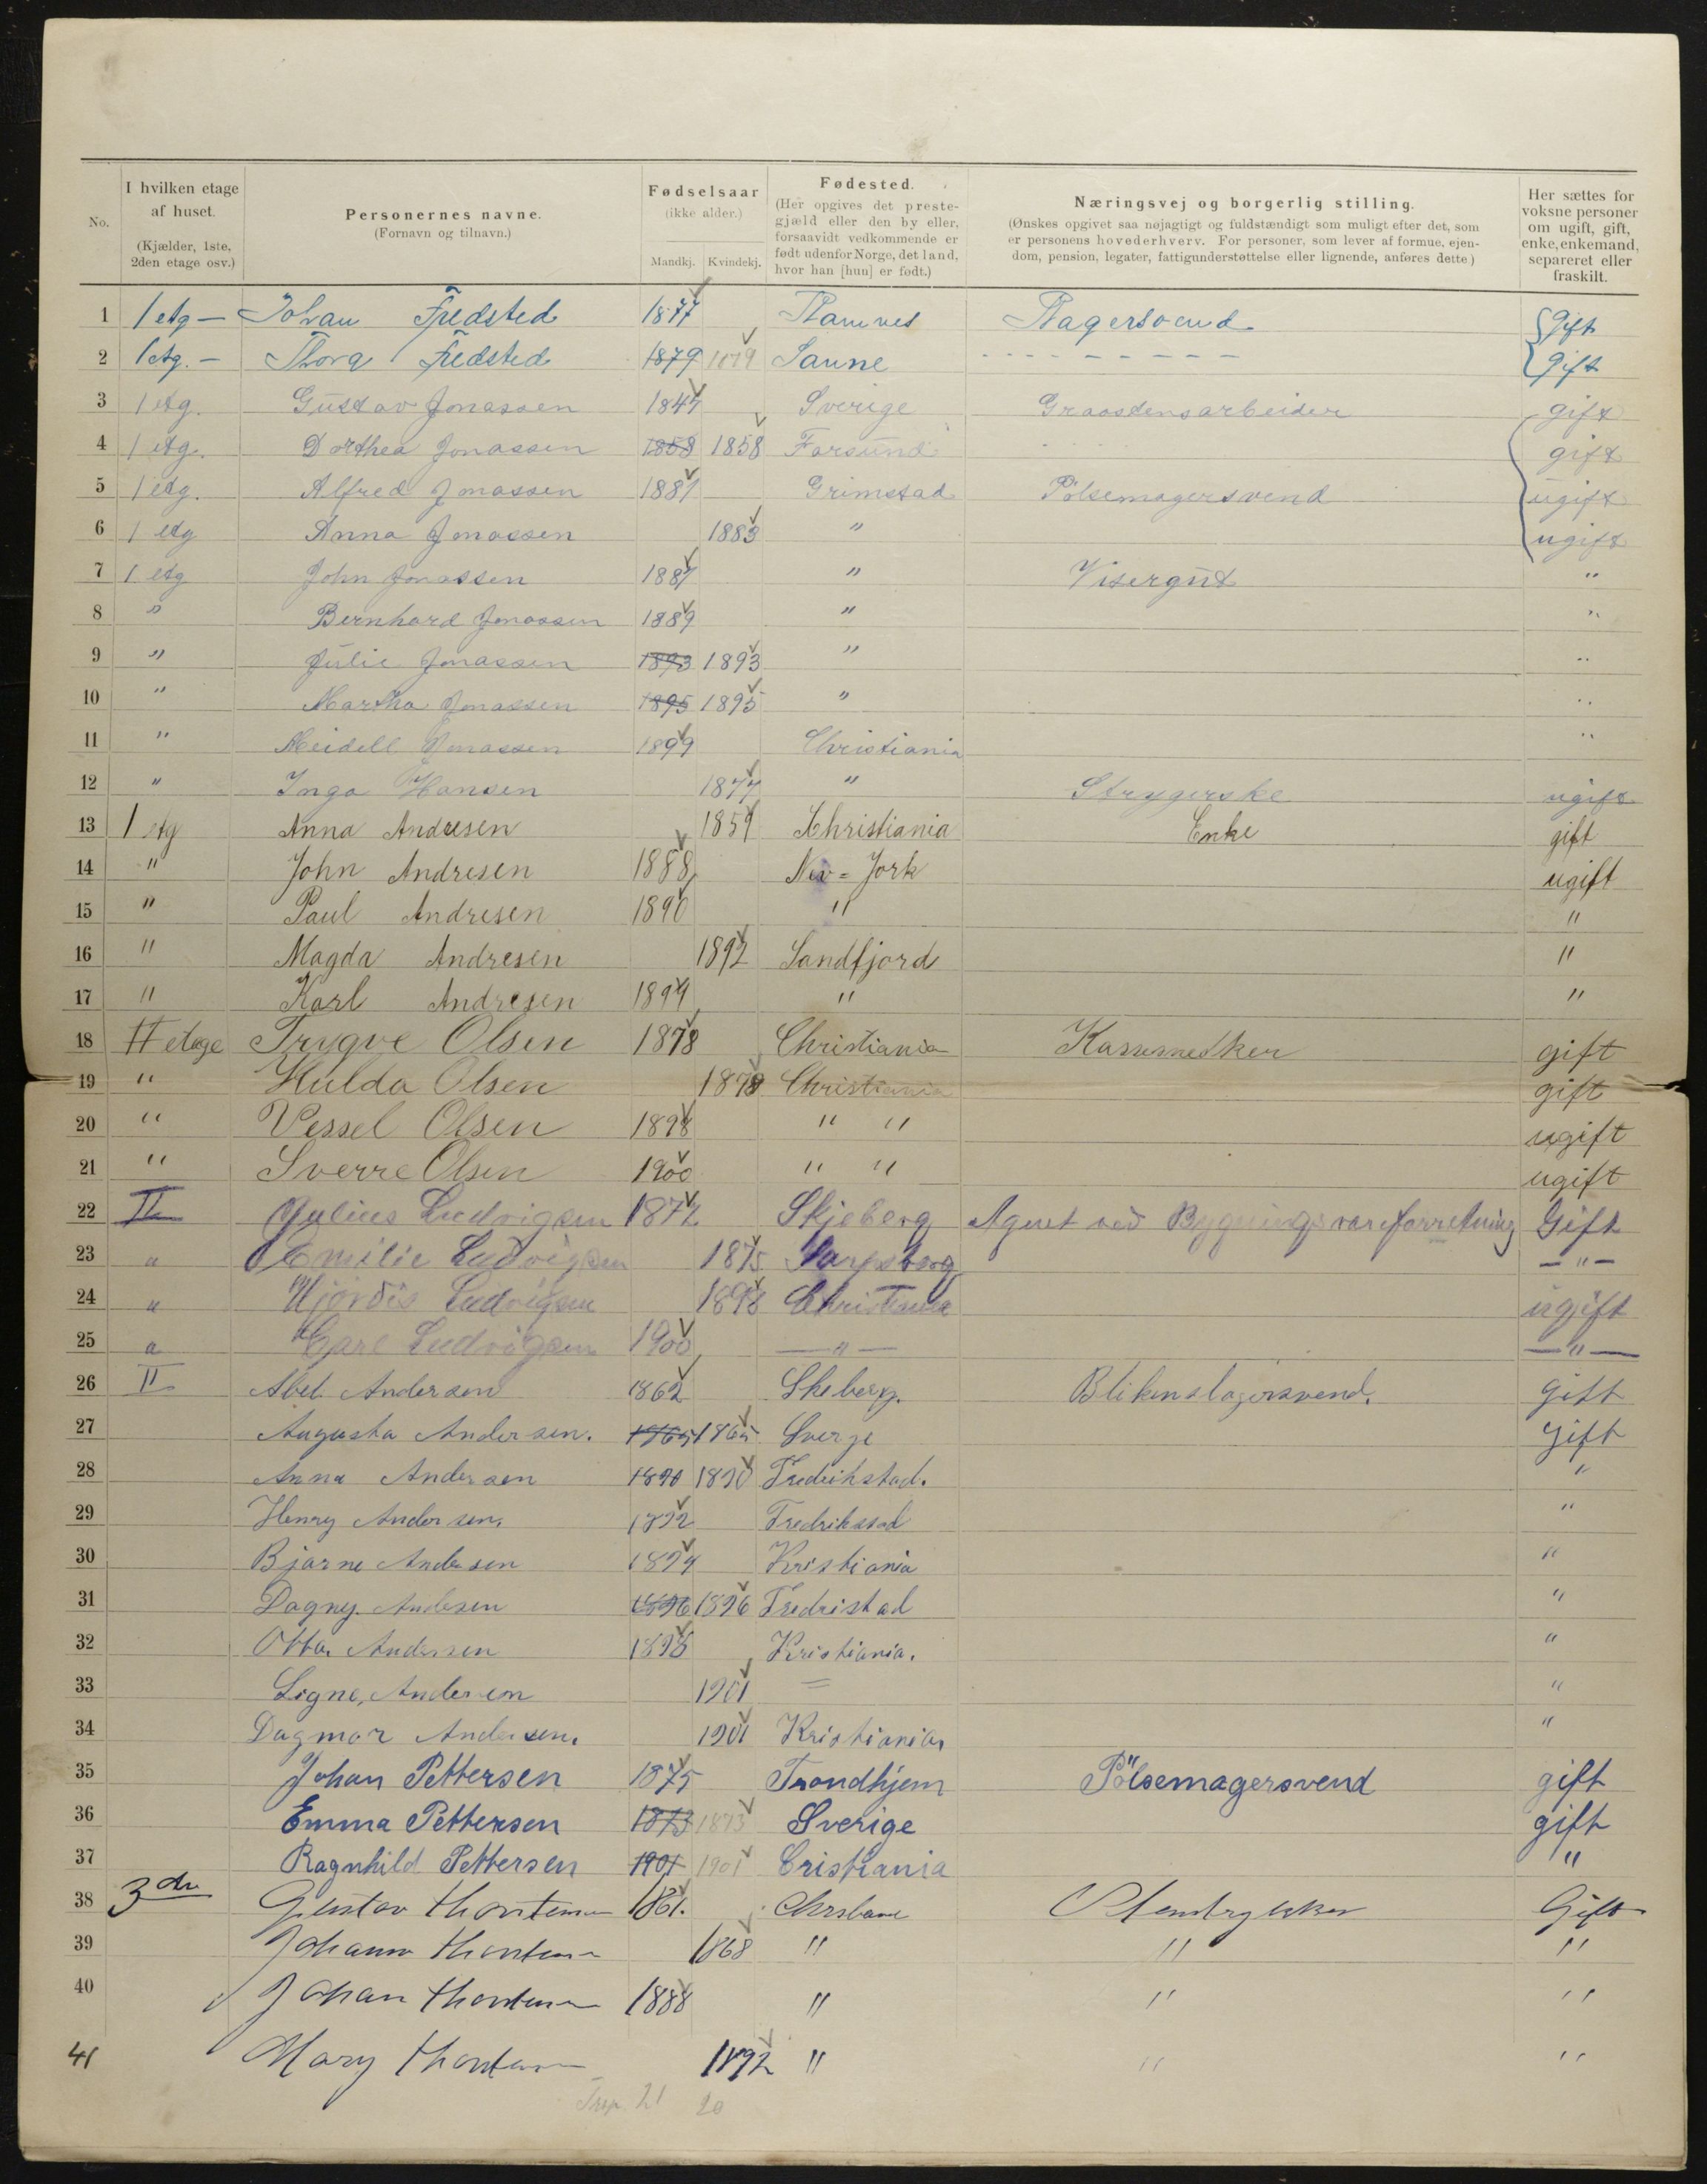 No. I hvilken etage af huset. (Kjælder, 1ste, 2den etage osv.) Personernes navne. (Fornavn og tilnavn.) Fødselsaar (ikke alder.) Mandkj. Kvindekj. Fødested. (Her opgives det prestegjæld eller den by eller, forsaavidt vedkommende er født udenfor Norge, det land, hvor han [hun] er født.) Næringsvej og borgerlig stilling. (Ønskes opgivet saa nøjagtigt og fuldstændigt som muligt efter det, som er personens hovederhverv. For personer, som lever af formue, ejendom, pension, legater, fattigunderstøttelse eller lignende, anføres dette) Her sættes for voksne personer om ugift, gift, enke, enkemand, separeret eller fraskilt.
1 1 etg — Johan Fredsted 1877 Bagersvend Gift
2 1 etg. — Thora Fredsted 1879 1879 Saune - - - - - - - - - Gift
3 1 etg. Gustav Jonassen 1847 Sverige Graastensarbeider gift
4 1 etg. Dorthea Jonassen 1858 1858 Farsund gift
5 1 etg. Alfred Jonassen 1881 Grimstad Pölsemagersvend ugift
6 1 etg Anna Jonassen 1883 " ugift
7 1 etg John Jonassen 1887 " Visergut "
8 " Bernhard Jonassen 1889 " "
9 " Julie Jonassen 1893 1893 " "
10 " Martha Jonassen 1895 1895 " "
11 " Meidell Jonassen 1899 Christiania "
12 " Inga Hansen 1877 " Strygerske ugift
13 1 etg Anna Andresen 1859 Christiania Enke gift
14 " John Andresen 1888 Nev=Jork ugift
15 " Paul Andresen 1890 " "
16 " Magda Andresen 1892 Sandfjord "
17 " Karl Andresen 1899 " "
18 II etage Trygve Olsen 1878 Christiania Kassesnedker gift
19 " Hulda Olsen 1878 Christiania gift
20 " Vessel Olsen 1898 " " ugift
21 " Sverre Olsen 1900 " " ugift
22 II Julius Ludvigsen 1872 Skjeberg Agent ved Bygningsvareforretning Gift
23 " Emilie Ludvigsen 1875 Sarpsborg — " —
24 " Hjördis Ludvigsen 1898 Christiania ugift
25 " Carl Ludvigsen 1900 — " — — " —
26 II Abel Andersen 1862 Skeberg. Blikenslagersvend. Gift
27 Augusta Andersen. 1865 1865 Sverge Gift
28 Anna Andersen 1890 1890 Fredrikstad. "
29 Henry Andersen. 1892 Fredrikstad "
30 Bjarne Andersen 1894 Kristiania "
31 Dagny. Andersen 1896 1896 Fredristad "
32 Otto. Andersen 1898 Kristiania. "
33 Signe, Andersen 1901 = "
34 Dagmar Andersen. 1901 Kristiania. "
35 Johan Pettersen 1875 Trondhjem Pölsemagersvend gift
36 Emma Pettersen 1873 1873 Sverige gift
37 Ragnhild Pettersen 1901 1901 Cristiania "
38 3die Gustav Thorstensen 1861. Stentrykker Gift
39 Johanne Thorstensen 1868 " " "
40 Johan Thorstensen 1888 " " "
41 Mary Thorstensen 1892 " " "
21 20